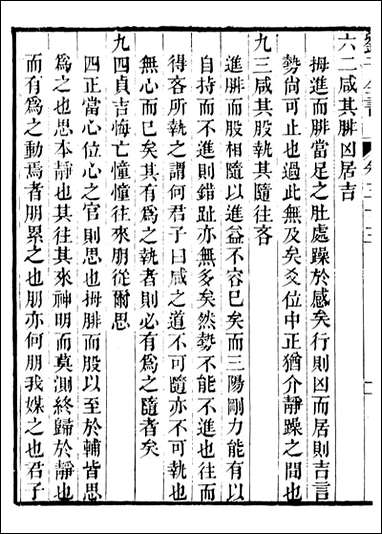 六二咸其腓凶居吉
拇進而腓當足之肚處躁於感矣行則凶而居則吉言
勢尚可止也過此無及矣爻位中正猶介靜躁之間也
九三咸其股執其隨往吝
進腓而股相隨以進益不容已矣而三陽剛力能有以
自持而不進則錯趾亦無多矣然勢不能不進也往而
得吝所執之謂何君子曰咸之道不可隨亦不可執也
無心而已矣其有為之執者則必有為之隨者矣
九四貞吉悔亡憧憧往來朋從爾思
四正當心位心之官則思也拇腓而股以至於輔皆思
為之也思本靜也其往其來神明而莫測終歸於靜也
而有為之動焉者朋累之也朋亦何朋我媒之也君子